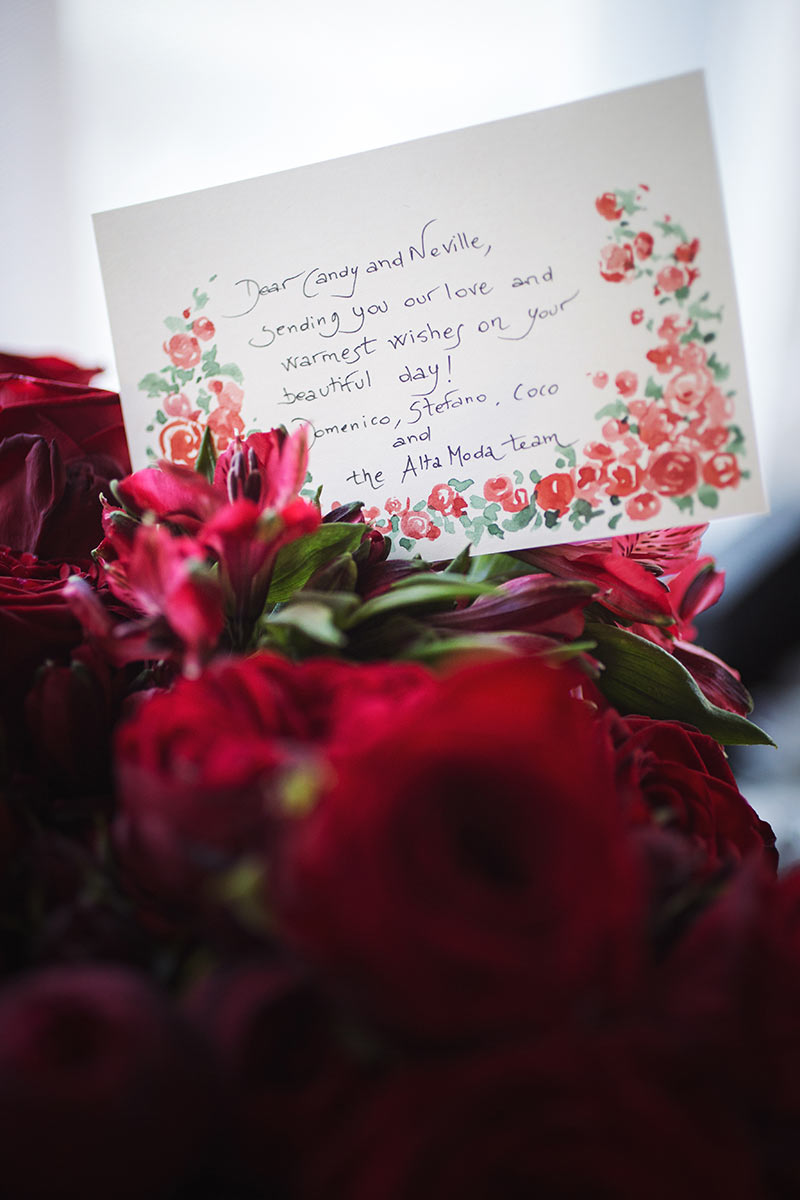 Dear Candy and Neville,
sending you our love and
warmest wishes on your
beautiful day!
Domenico, Stefano, Coco
and
the Alta Moda team